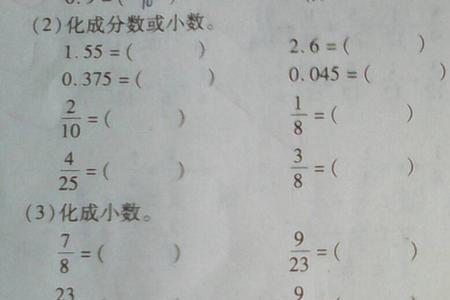 (2)化成分数或小数。
1.55=(    )    2.6=(    )
0.375=(    )    0.045=(    )
2/10=(    )    1/8=(    )
4/25=(    )    3/8=(    )
(3)化成小数。
7/8=(    )    9/23=(    )
23    9